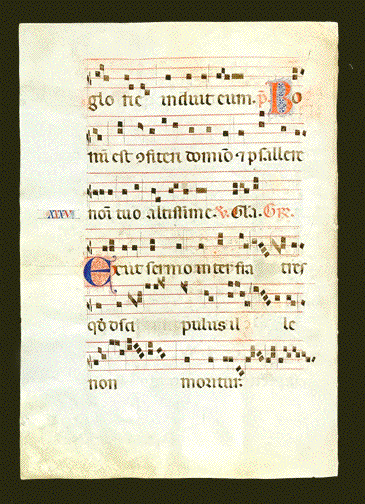 glo rie induit eum. p̄. Bo
nū est ꝯfiteri domīo ⁊ psallere
noī tuo altissime. ℣. Gła. Gr̄.
XXXVI
Exiit sermo inter fra tres
qd̄ dsci pulus il le
non moritur.